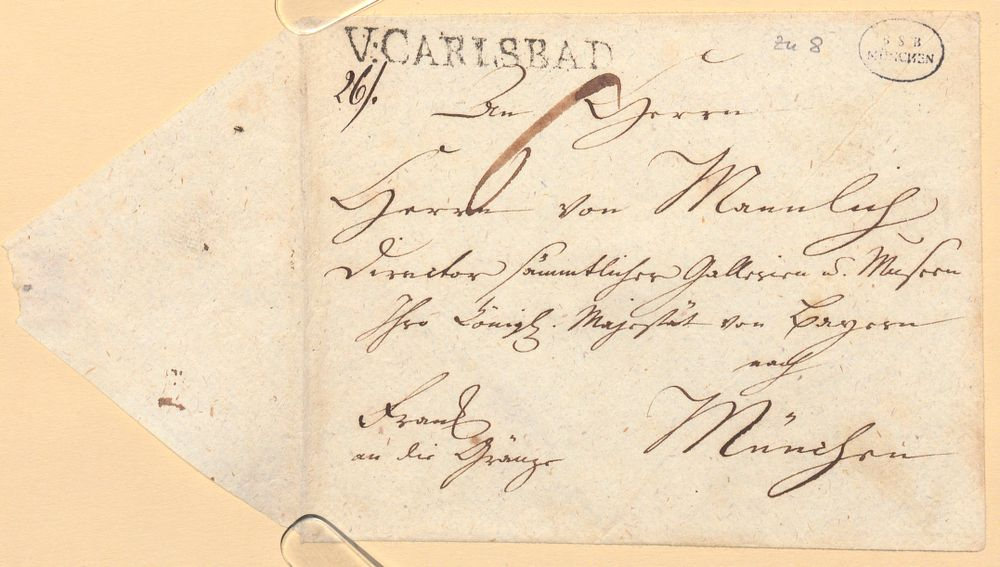 V:CARLSBAD
zu 8
B S B
MÜNCHEN
26/.
An Herrn
Herrn von Mannlich
Director sämmtlicher Gallerien u. Museen
Ihro Königl. Majestät von Bayern
nach
München
Frank
an die Gränze